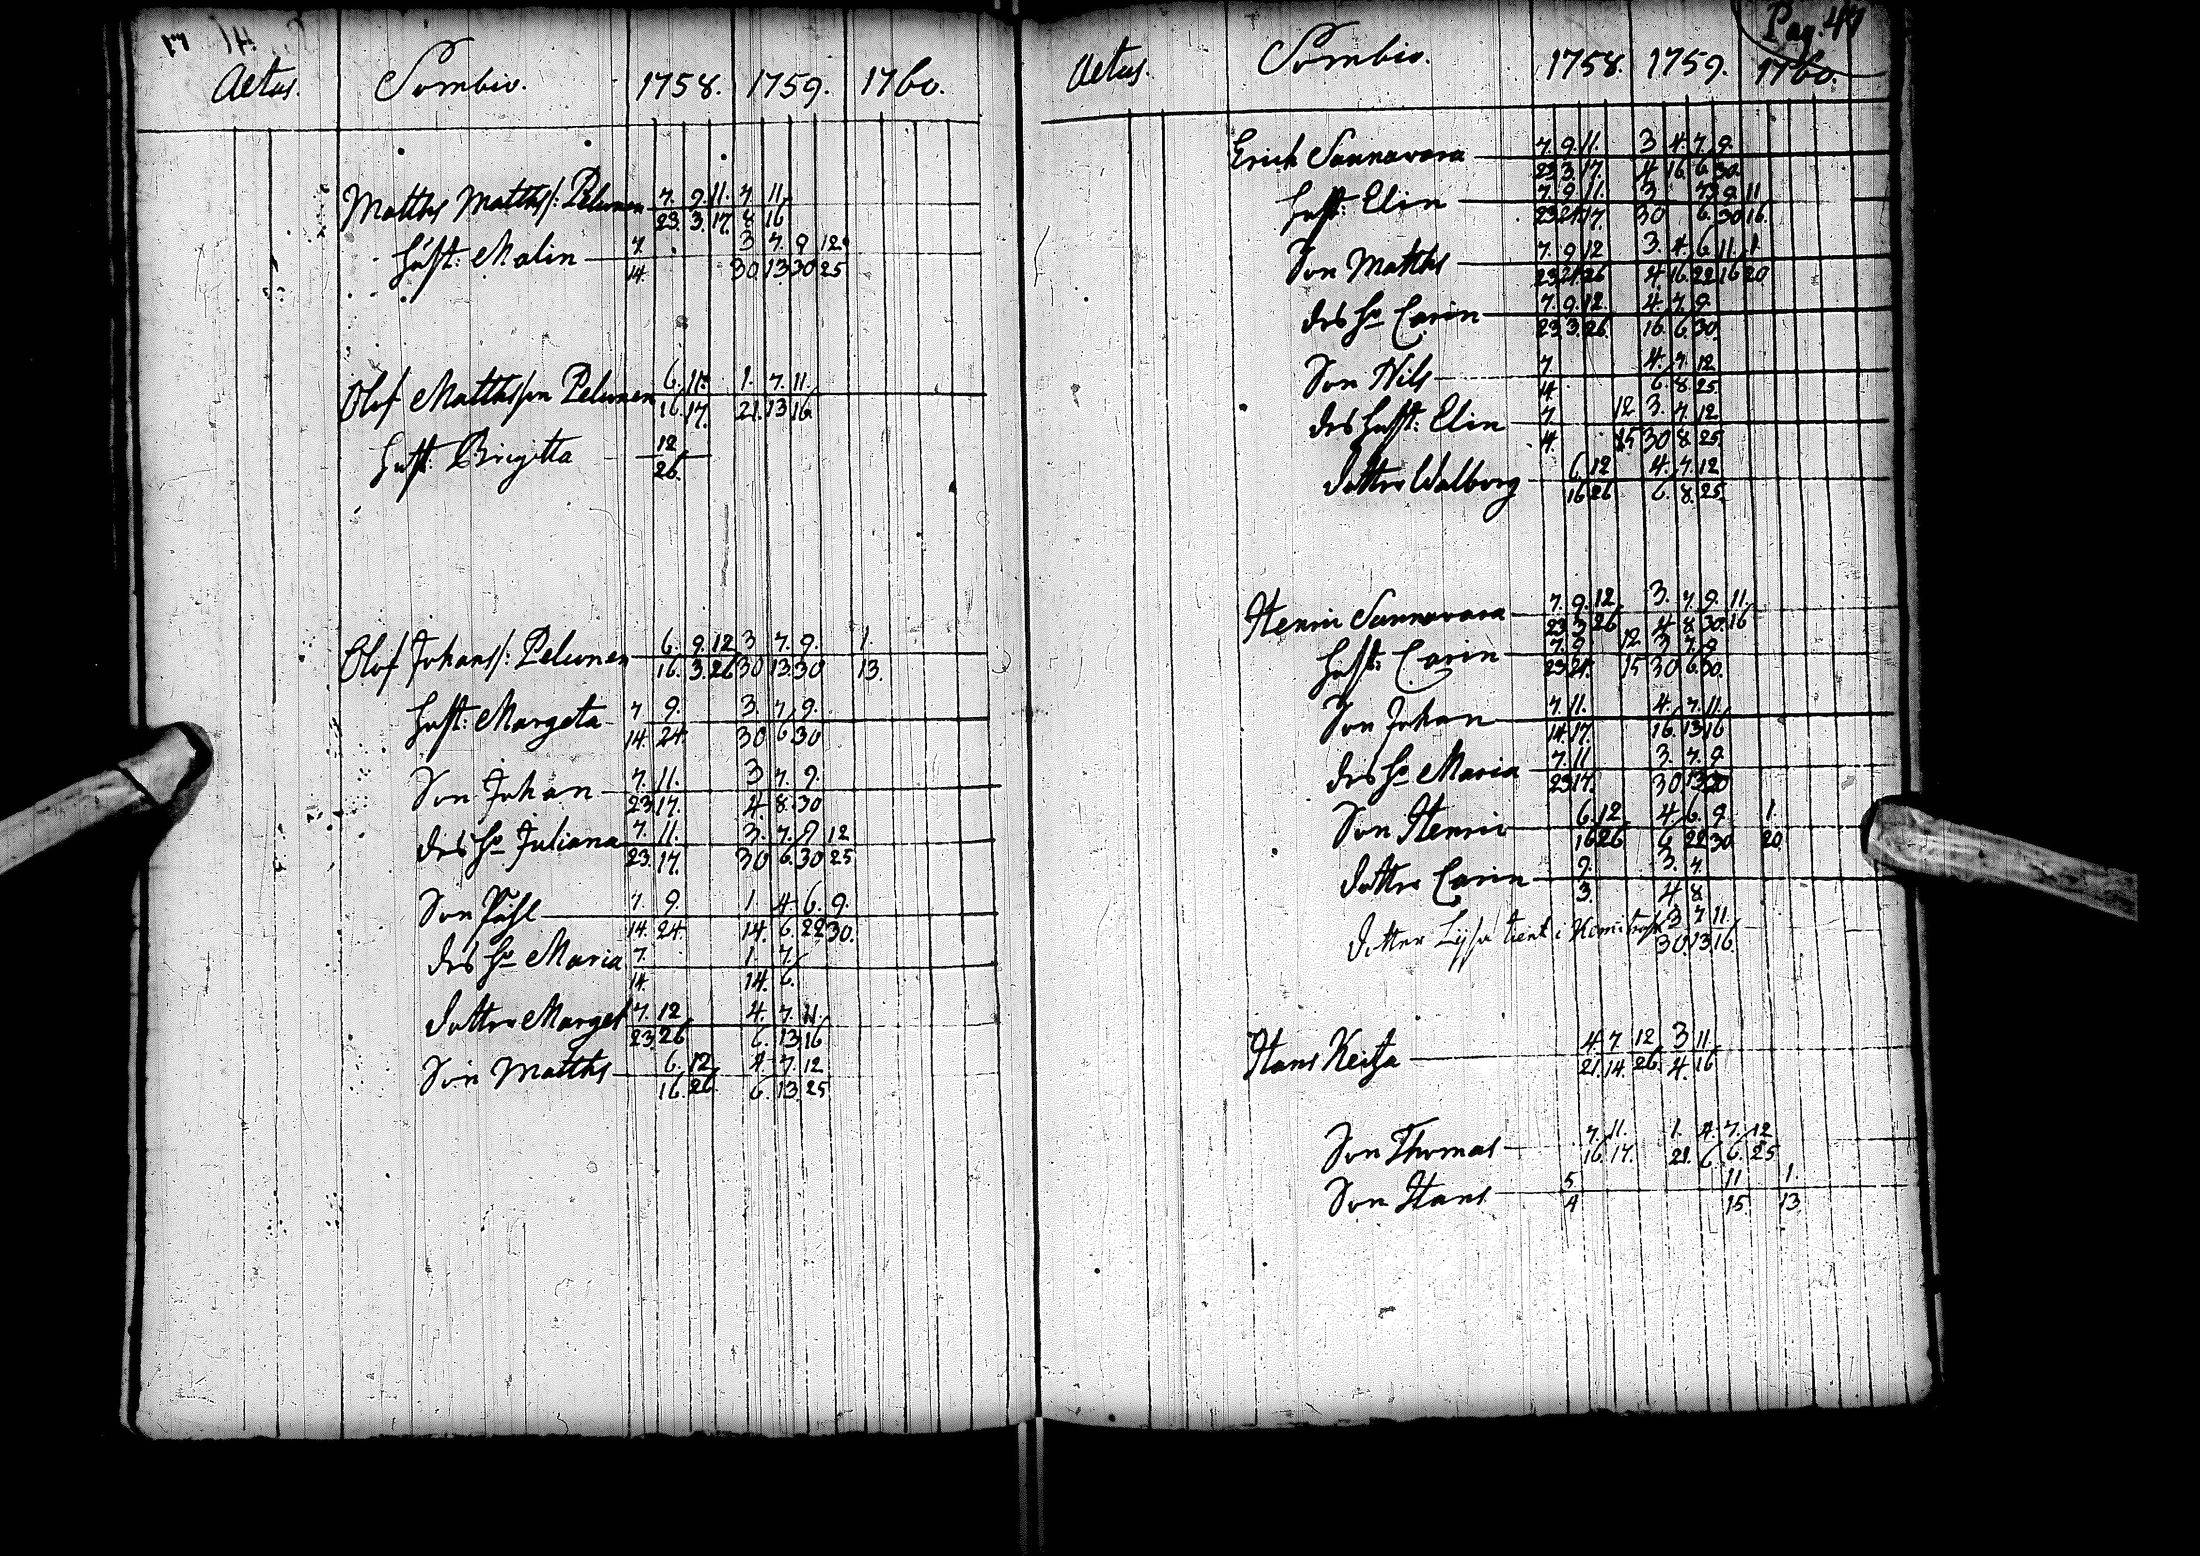 Aetas. Sombio. 1758. 1759. 1760.
Matths Matthss: Pelunen 7. 9. 11. 7. 11.
23. 3. 17. 8 16
hust: Malin 7. 3 7. 9 12.
14. 30 13. 30 25
Olof Matthsson Pelunen 6. 11. 1. 7. 11.
16. 17. 21. 13 16
Hust: Birgitta 12
26.
Olof Johanss: Pelunen 6. 9. 12 3 7. 9. 1.
16. 3. 26 30 13. 30 13.
hust: Margeta 7 9. 3. 7. 9.
14. 24 30 6 30
Son Johan 7. 11. 3 7. 9.
23. 17. 4. 8. 30
des H Juliana 7. 11. 3. 7. 9 12.
23. 17. 30 6. 30 25
Son Påhl 7. 9. 1. 4. 6. 9.
14. 24. 14. 6. 22 30.
des H Maria 7. 1. 7.
14. 14. 6.
dotter Marget 7. 12 4. 7. 11.
23. 26 6. 13 16
Son Matths 6. 12 4. 7. 12
16. 26. 6. 13. 25
Pag. 47
Aetas. Sombio. 1758. 1759. 1760.
Erich Sunnavara 7. 9. 11. 3 4. 7. 9.
23 3. 17. 4 16. 6. 30
hust: Elin 7. 9 11. 3 7. 9. 11
23 24 17. 30 6. 30 16.
Son Matths 7. 9 12 3. 4. 6. 11. 1
23 24 26 4. 16. 22 16 20
des H Carin 7. 9. 12. 4. 7. 9.
23. 3. 26. 16. 6. 30.
Son Nils 7 4. 7. 12
14. 6. 8. 25
des hust: Elin 7. 12 3. 7. 12
14. 15 30 8. 25
dotter Walborg 6. 12 4. 7. 12
16 26 6. 8. 25.
Henric Sunnavara 7. 9. 12. 3. 7. 9. 11.
23 3 26 4 8 30 16
hust: Carin 7. 9 12 3 7. 9
23 24. 15 30 6. 30.
Son Johan 7. 11. 4. 7. 11.
14 17. 16. 13 16
des H Maria 7. 11 3. 7. 9.
23 17. 30 13 30
Son Henric 6. 12. 4. 6. 9. 1.
16 26 6 22 30 20
dotter Carin 9. 3. 7.
3. 4 8
dotter Lijsa tient i Kemiträsk 3 7 11
30. 13. 16.
Hans Keissa 4. 7. 12 3 11
21. 14. 26. 4. 16
Son Thomas 7. 11. 1. 4. 7. 12
16. 17. 21. 6 6. 25
Son Hans 5 11 1.
4 15 13